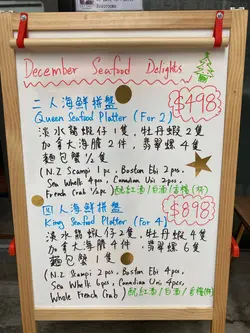 December Seafood Delights
二人海鮮拼盤 $498
Queen Seafood Platter (For 2)
淡水鰲蝦仔1隻, 牡丹蝦2隻
加拿大海膽2件, 翡翠螺4隻
麵包蟹½隻
(N.Z. Scampi 1pc, Boston Ebi 2pcs,
Sea Whelk 4pcs, Canadian Uni 2pcs,
French Crab ½pc) 配紅酒/白酒/香檳(杯)
四人海鮮拼盤 $898
King Seafood Platter (For 4)
淡水鰲蝦仔2隻, 牡丹蝦4隻
加拿大海膽4件, 翡翠螺6隻
麵包蟹1隻
(N.Z. Scampi 2pcs, Boston Ebi 4pcs,
Sea Whelk 6pcs, Canadian Uni 4pcs,
Whole French Crab) 配紅酒/白酒/香檳